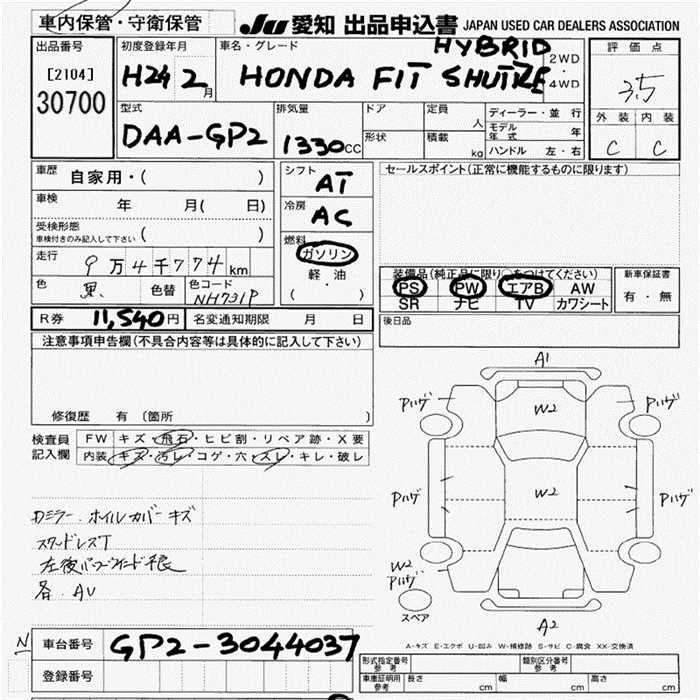 車内保管・守衛保管
JU 愛知 出品申込書 JAPAN USED CAR DEALERS ASSOCIATION
出品番号 [2104] 30700
初度登録年月 H24 2月
車名・グレード HONDA FIT SHUTTLE HYBRID
2WD・4WD
評価点 3.5
外装 内装
C C
型式 DAA-GP2
排気量 1330cc
ドア
形状
定員 人
積載 kg
ディーラー・並行
モデル年式 年
ハンドル 左・右
車歴 自家用・( )
車検 年 月( 日)
受検形態
車検付きのみ記入して下さい ( )
走行 9万4千774km
色 黒
色替
色コード NH731P
シフト AT
冷房 AC
燃料
ガソリン
軽油
( ・ )
セールスポイント(正常に機能するものに限ります)
装備品(純正品に限り○をつけてください)
PS PW エアB AW
SR ナビ TV カワシート
新車保証書
有・無
R券 11,540円 名変通知期限 月 日
後日品
注意事項申告欄(不具合内容等は具体的に記入して下さい)
修復歴 有 〔箇所 〕
検査員記入欄
FW キズ・飛石・ヒビ割・リペア跡・X要
内装 キズ・汚レ・コゲ・穴・スレ・キレ・破レ
ドミラー.ホイルカバーキズ
スタッドレスT
左後パワーウインド不良
各.AU
A1
Pハゲ W2 Pハゲ
Pハゲ W2 Pハゲ
W2
Pハゲ
スペア
A2
A-キズ E-エクボ U-凹み W-補修跡 S-サビ C-腐食 XX-交換済
N 車台番号 GP2-3044037
登録番号
形式指定番号 参考
類別区分番号 参考
車庫証明用 参考
長さ cm 幅 cm 高さ cm